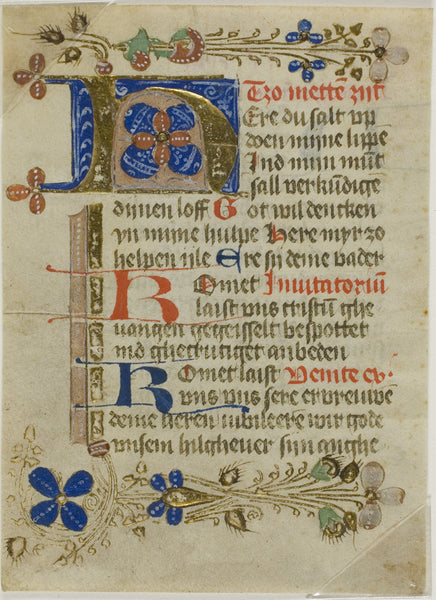 Tzo mettē zijt
HEre du salt vp
doen mijne lippe
Ind mijn mūt
sall verkūdige
dijnen loff Got wil dencken
yn mijne hulpe Here myr zo
helpen ijle Ere sy deme vader
Komet Inuitatoriū
laist vns cristū ghe
uangen gegeisselt bespottet
ind ghecrutiget anbeden
Komet laist Uenite ex
vns vns sere ervreuwē
deme heren iubileere wir gode
vnsem